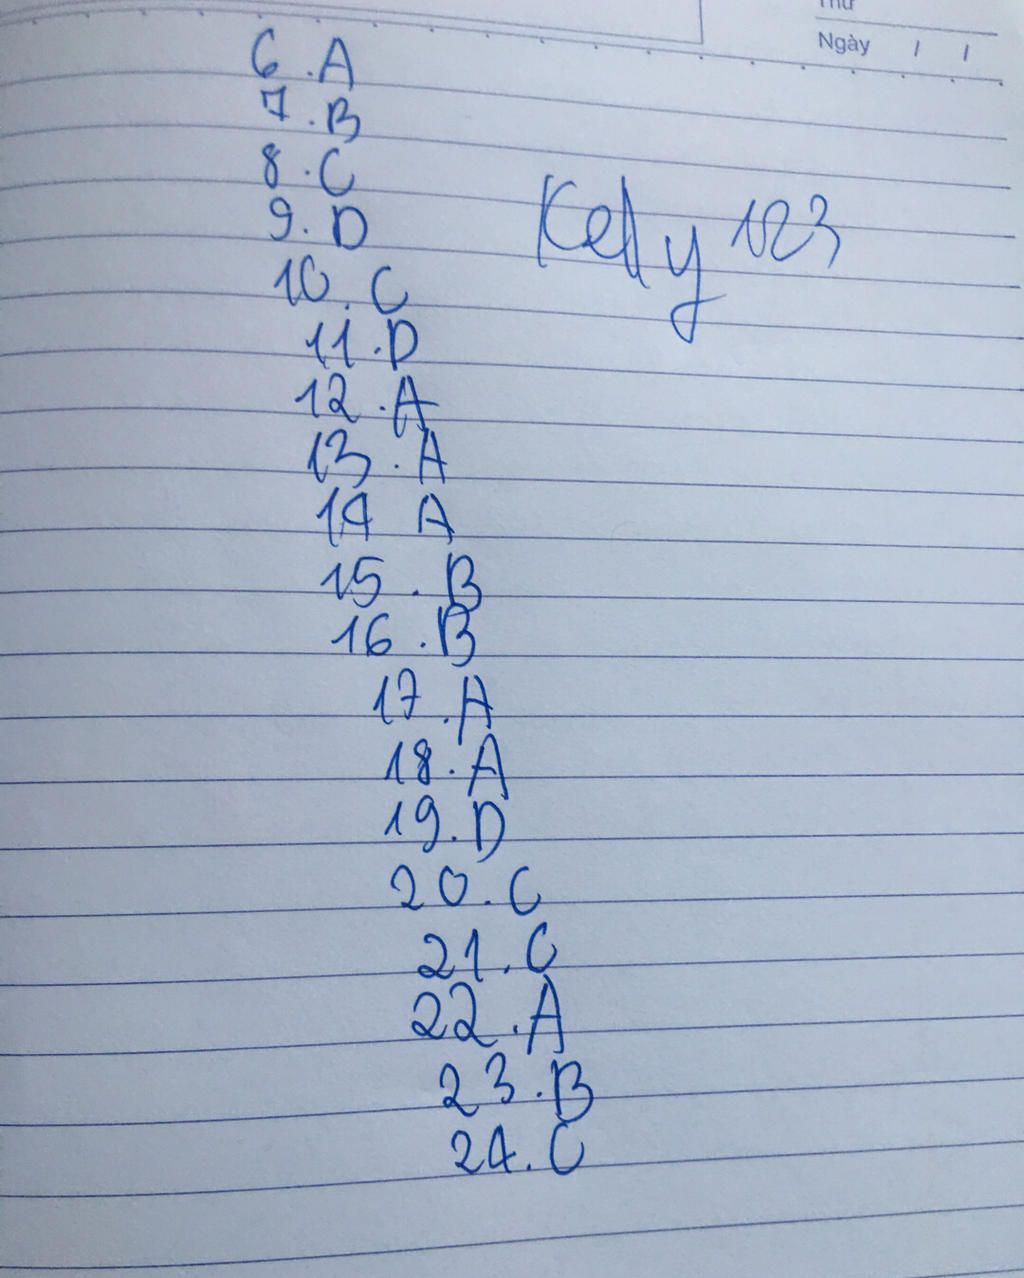 Thứ
Ngày / /
6.A
7.B
8.C
9.D
Kelly 123
10.C
11.D
12.A
13.A
14 A
15.B
16.B
17.A
18.A
19.D
20.C
21.C
22.A
23.B
24.C